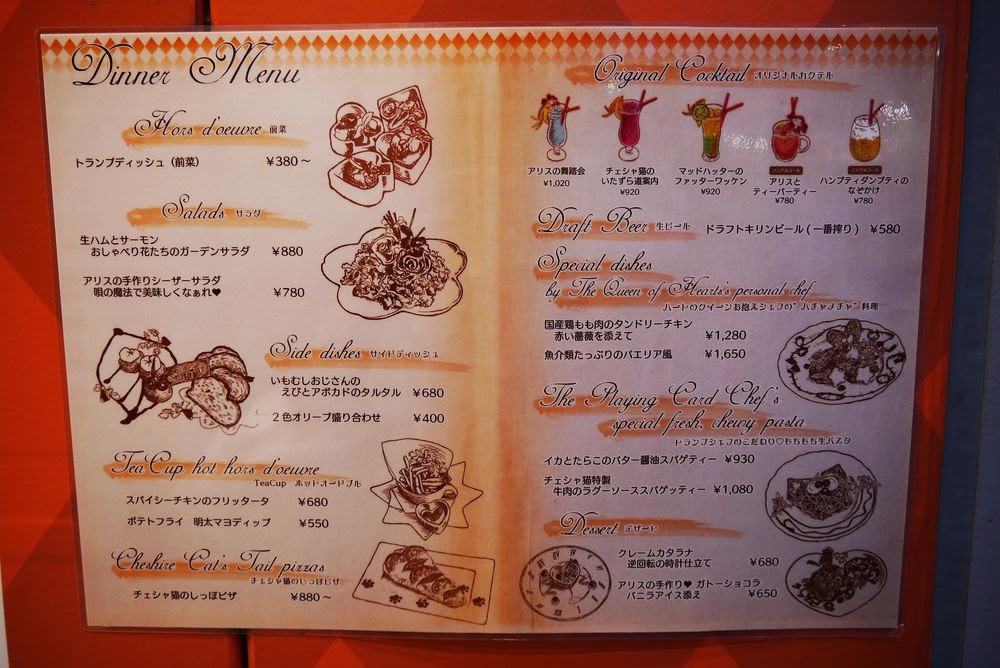 Dinner Menu
Hors d'oeuvre 前菜
トランプディッシュ（前菜） ¥380～
Salads サラダ
生ハムとサーモン
おしゃべり花たちのガーデンサラダ ¥880
アリスの手作りシーザーサラダ
唄の魔法で美味しくなぁれ♥ ¥780
Side dishes サイドディッシュ
いもむしおじさんの
えびとアボカドのタルタル ¥680
２色オリーブ盛り合わせ ¥400
TeaCup hot hors d'oeuvre
TeaCup ホットオードブル
スパイシーチキンのフリッタータ ¥680
ポテトフライ 明太マヨディップ ¥550
Cheshire Cat's Tail pizzas
チェシャ猫のしっぽピザ
チェシャ猫のしっぽピザ ¥880～
Original Cocktail オリジナルカクテル
アリスの舞踏会
¥1,020
チェシャ猫の
いたずら道案内
¥920
マッドハッターの
ファッターワッケン
¥920
ノンアルコール
アリスと
ティーパーティー
¥780
ノンアルコール
ハンプティダンプティの
なぞかけ
¥780
Draft Beer 生ビール ドラフトキリンビール(一番搾り) ¥580
Special dishes
by The Queen of Hearts's personal chef
ハートのクイーンお抱えシェフの"ハチャメチャ"料理
国産鶏もも肉のタンドリーチキン
赤い薔薇を添えて ¥1,280
魚介類たっぷりのパエリア風 ¥1,650
The Playing Card Chef's
special fresh, chewy pasta
トランプシェフのこだわり♡もちもち生パスタ
イカとたらこのバター醤油スパゲティー ¥930
チェシャ猫特製
牛肉のラグーソーススパゲッティー ¥1,080
Dessert デザート
クレームカタラナ
逆回転の時計仕立て ¥680
アリスの手作り♥ガトーショコラ
バニラアイス添え ¥650